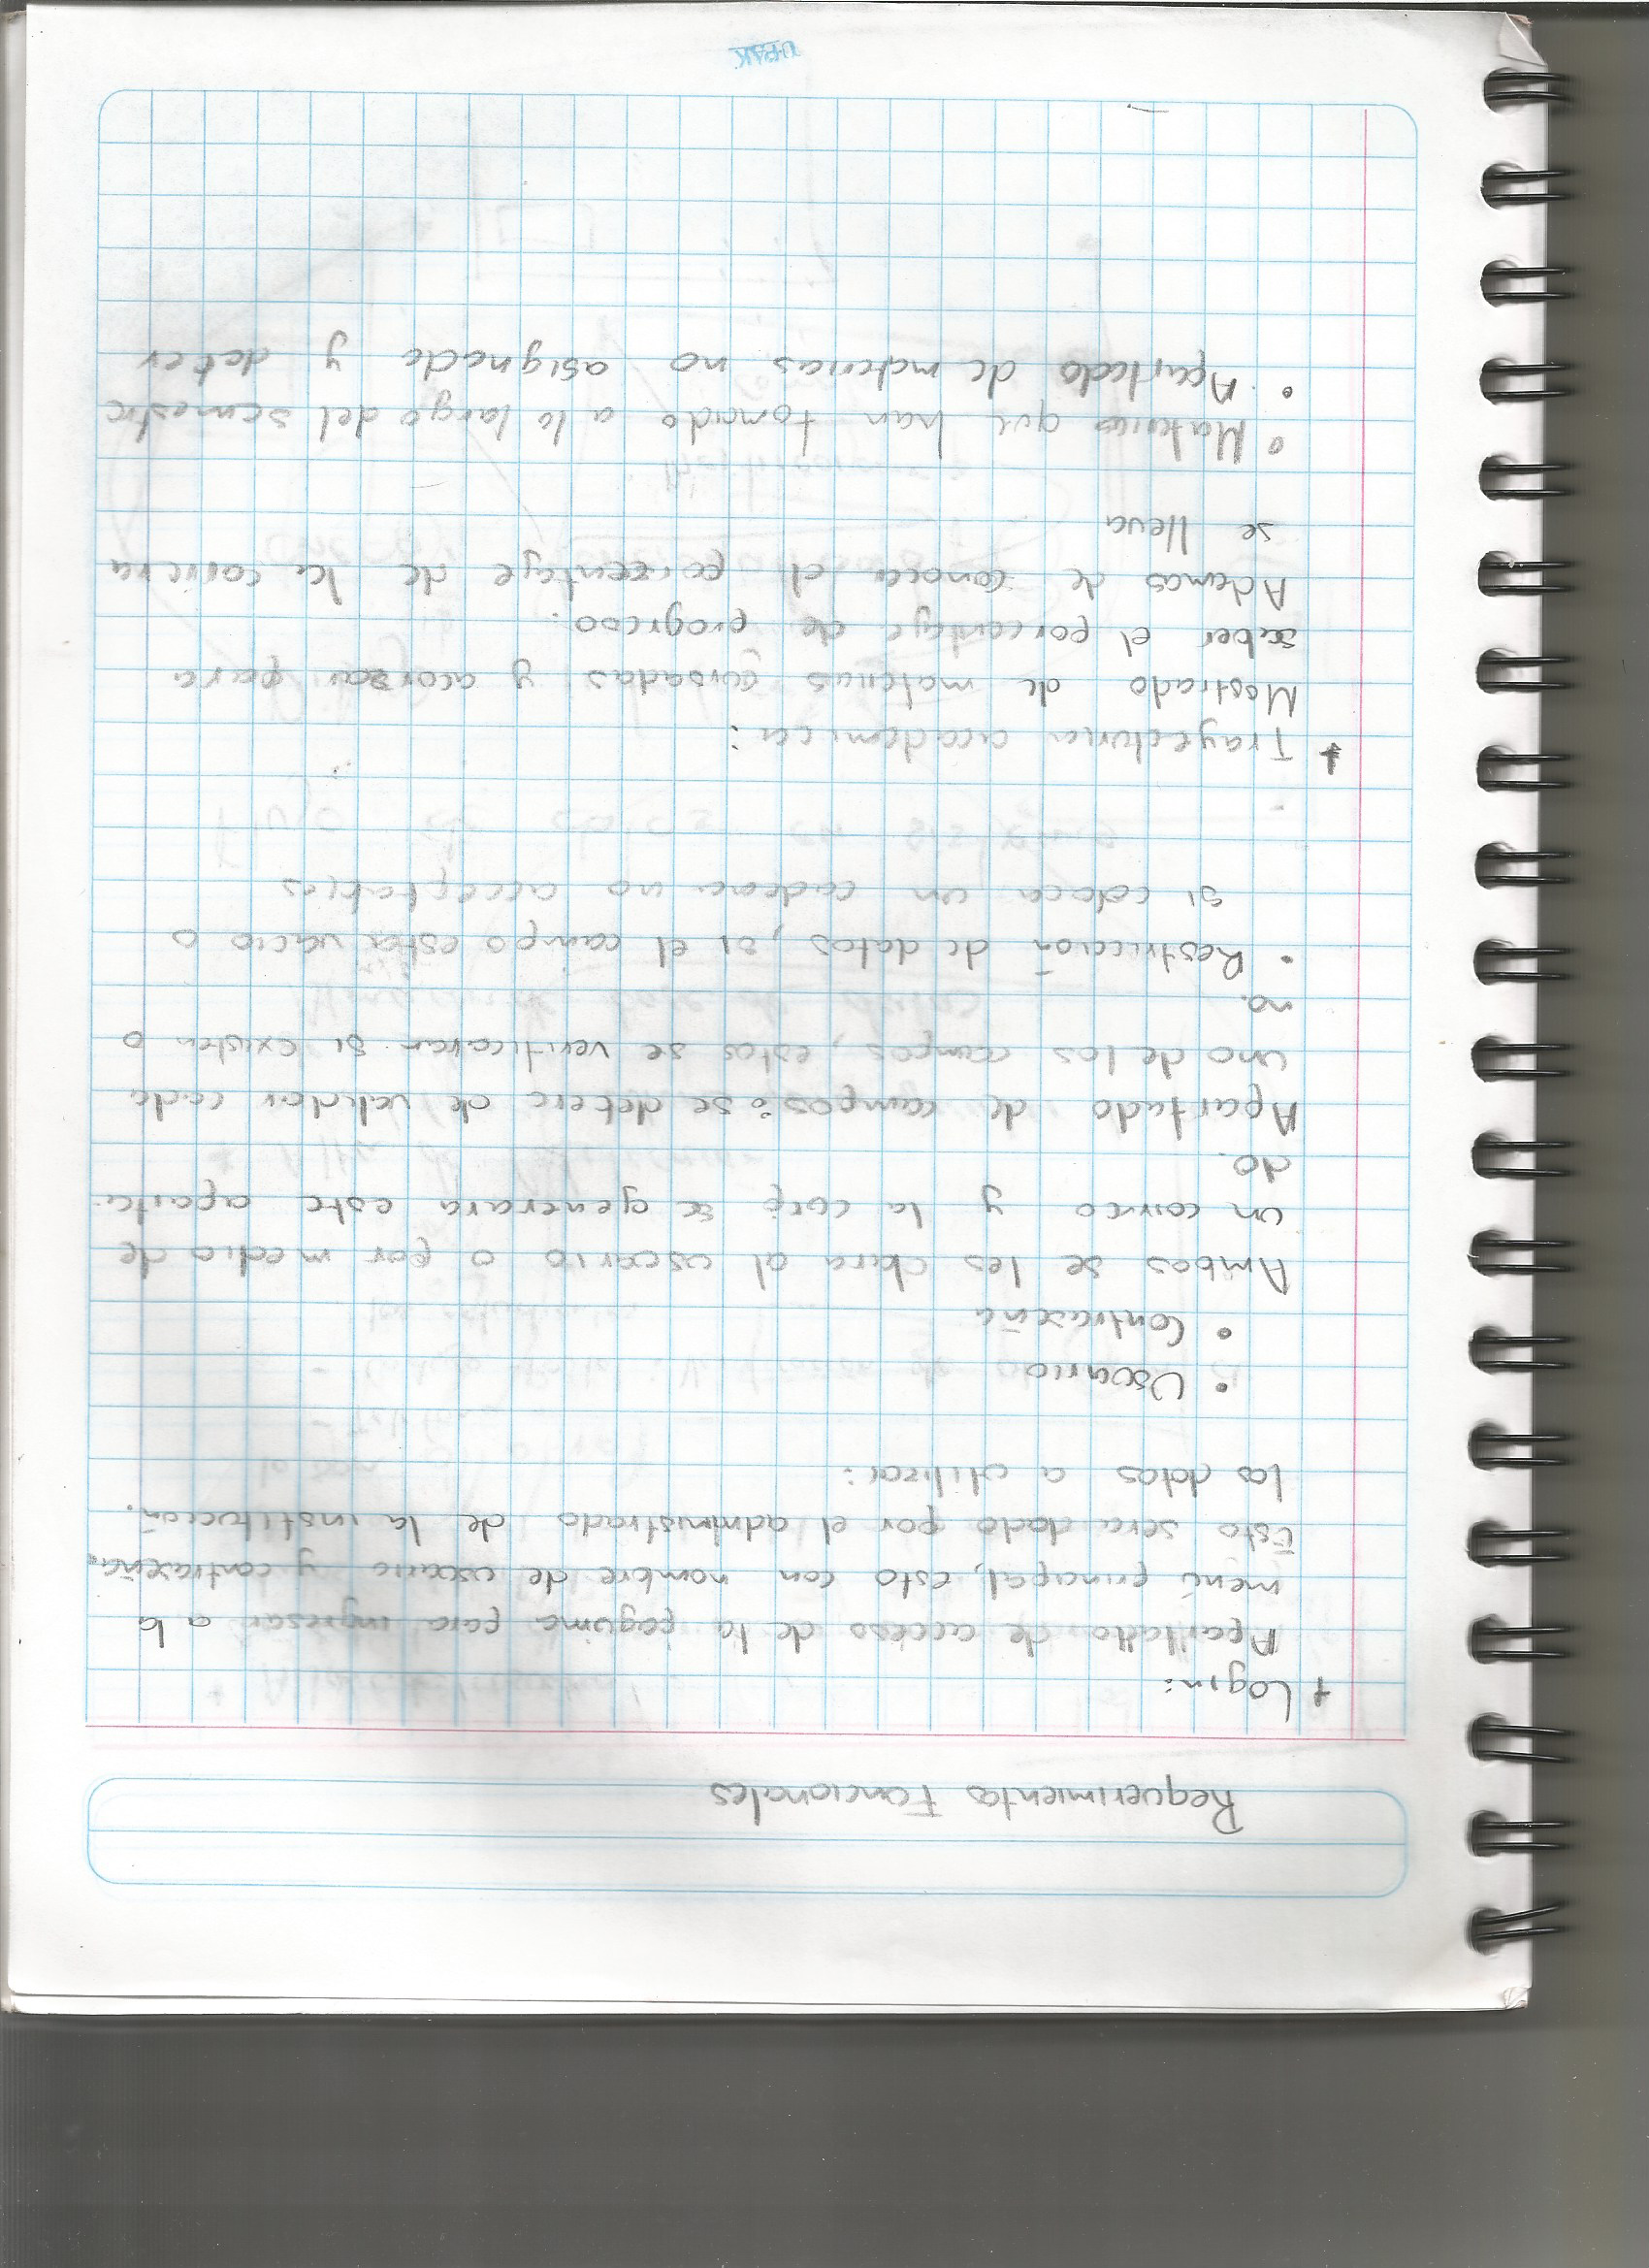 Requerimientos Funcionales
+ Login:
Apartado de acceso de la pagina para ingresar a la
menú principal, esto con nombre de usuario y contraseña.
Esto sera dado por el administrado de la institución.
los datos a utilizar:
• Usuario
• Contraseña
Ambos se les dara al usuario o por medio de
un correo y la se generara este aparta-
do.
Apartado de campos: se debera de validar cada
uno de los campos, estos se verificaran si existen o
no.
• Restricción de datos, si el campo esta vacio o
si coloca un cadena no acceptables
+ Trayectoria academica:
Mostrado de materias cursadas y acorsar para
saber el porcentaje de progreso.
Ademas de conocer el porcentaje de la carrera
se lleva
• Materias que han tomado a lo largo del semestre
• Apartado de materias no asignada y deber
U·PAK